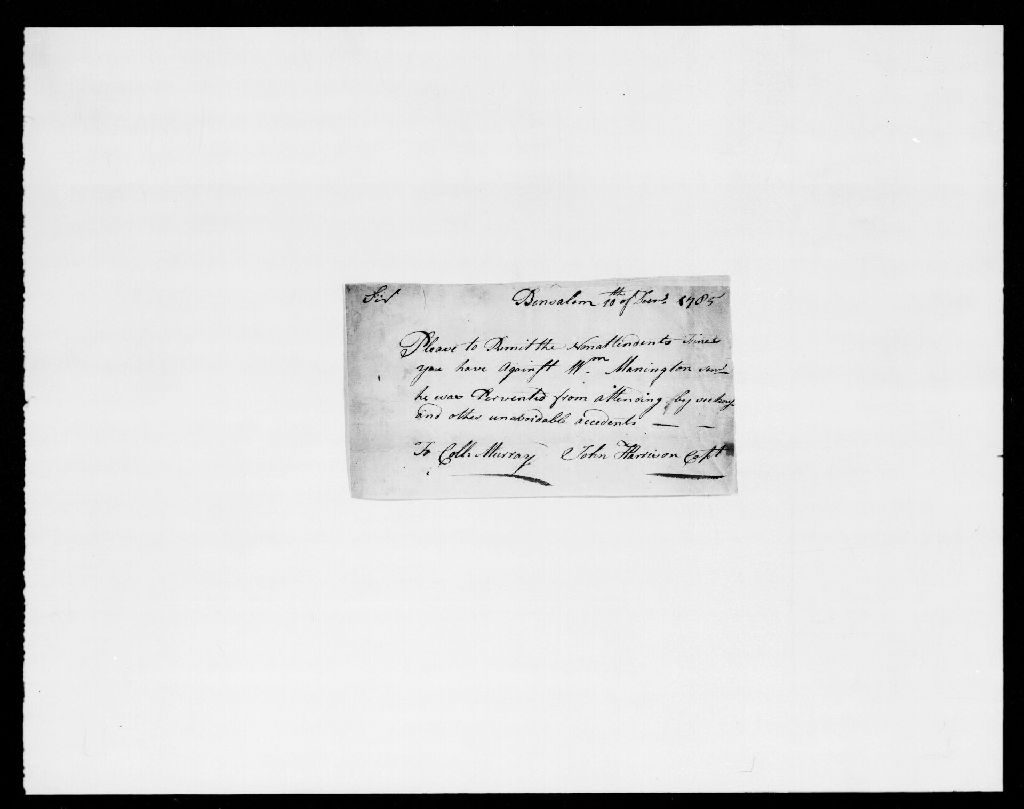 Sir Bensalem 10th of 1785
Please to Remit the Nonattendents Fines
you have Against Wm Manington
he was Pervented from attending by
and other unavoidable accedents
To Coll Murray John Harrison Capt